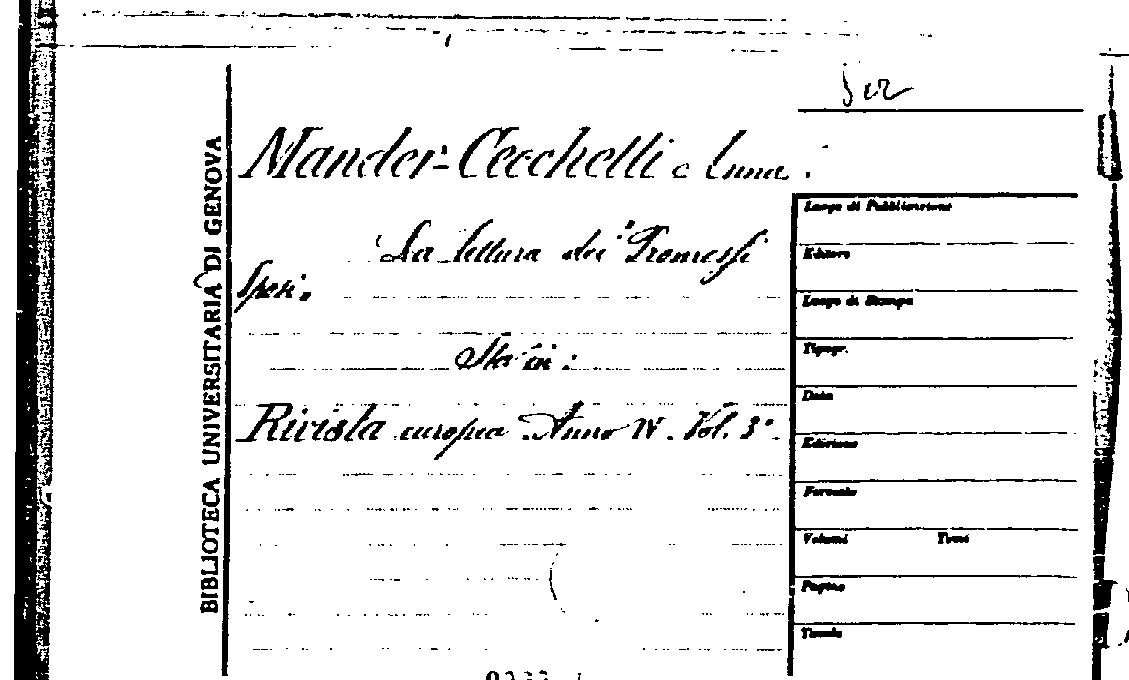 Ser
Mander-Cecchetti e Anna.
La lettura dei Promessi
Sposi.
Sta in:
Rivista europea. Anno IV. Vol. 3°.
BIBLIOTECA UNIVERSITARIA DI GENOVA
Luogo di Pubblicazione
Editore
Luogo di Stampa
Tipogr.
Data
Edizione
Formato
Volumi Tomi
Pagine
Tavole